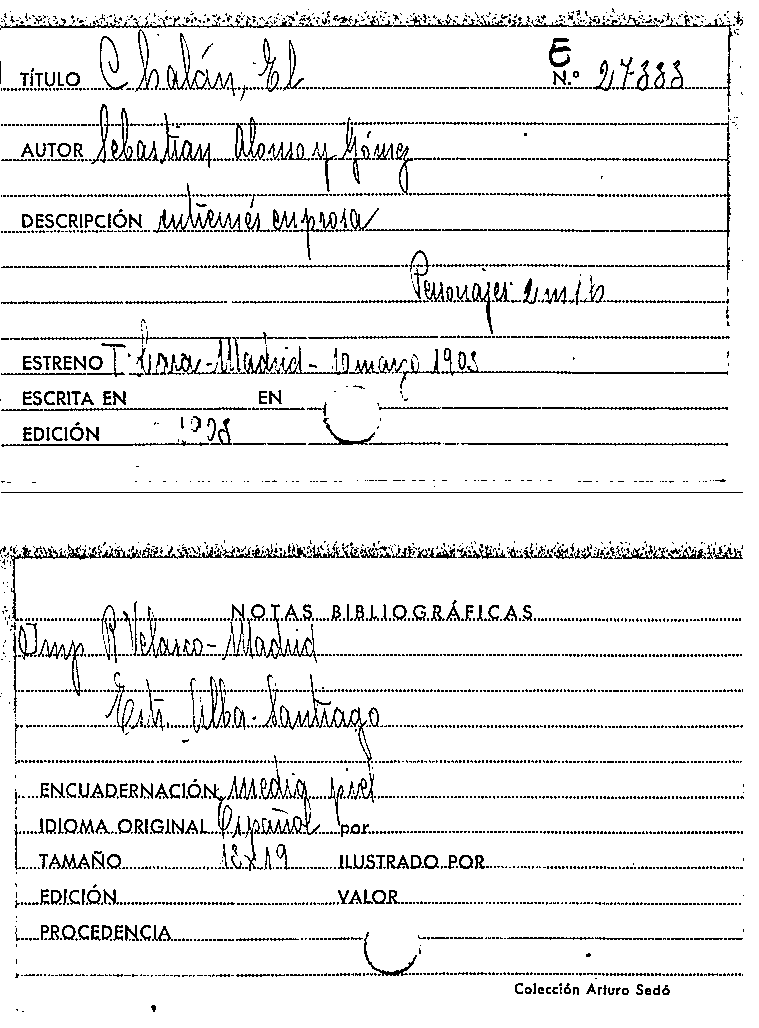 E
TÍTULO Chalán, El N.º 27383
AUTOR Sebastian Alonso y Gómez
DESCRIPCIÓN entremés en prosa
Personajes 2 m 1 h
ESTRENO T. Lara - Madrid - 10 marzo 1903
ESCRITA EN EN
EDICIÓN 1908
NOTAS BIBLIOGRÁFICAS
Imp R Velasco - Madrid
Estr. Alba - Santiago
ENCUADERNACIÓN media piel
IDIOMA ORIGINAL Español por
TAMAÑO 13x19 ILUSTRADO POR
EDICIÓN VALOR
PROCEDENCIA
Colección Arturo Sedó